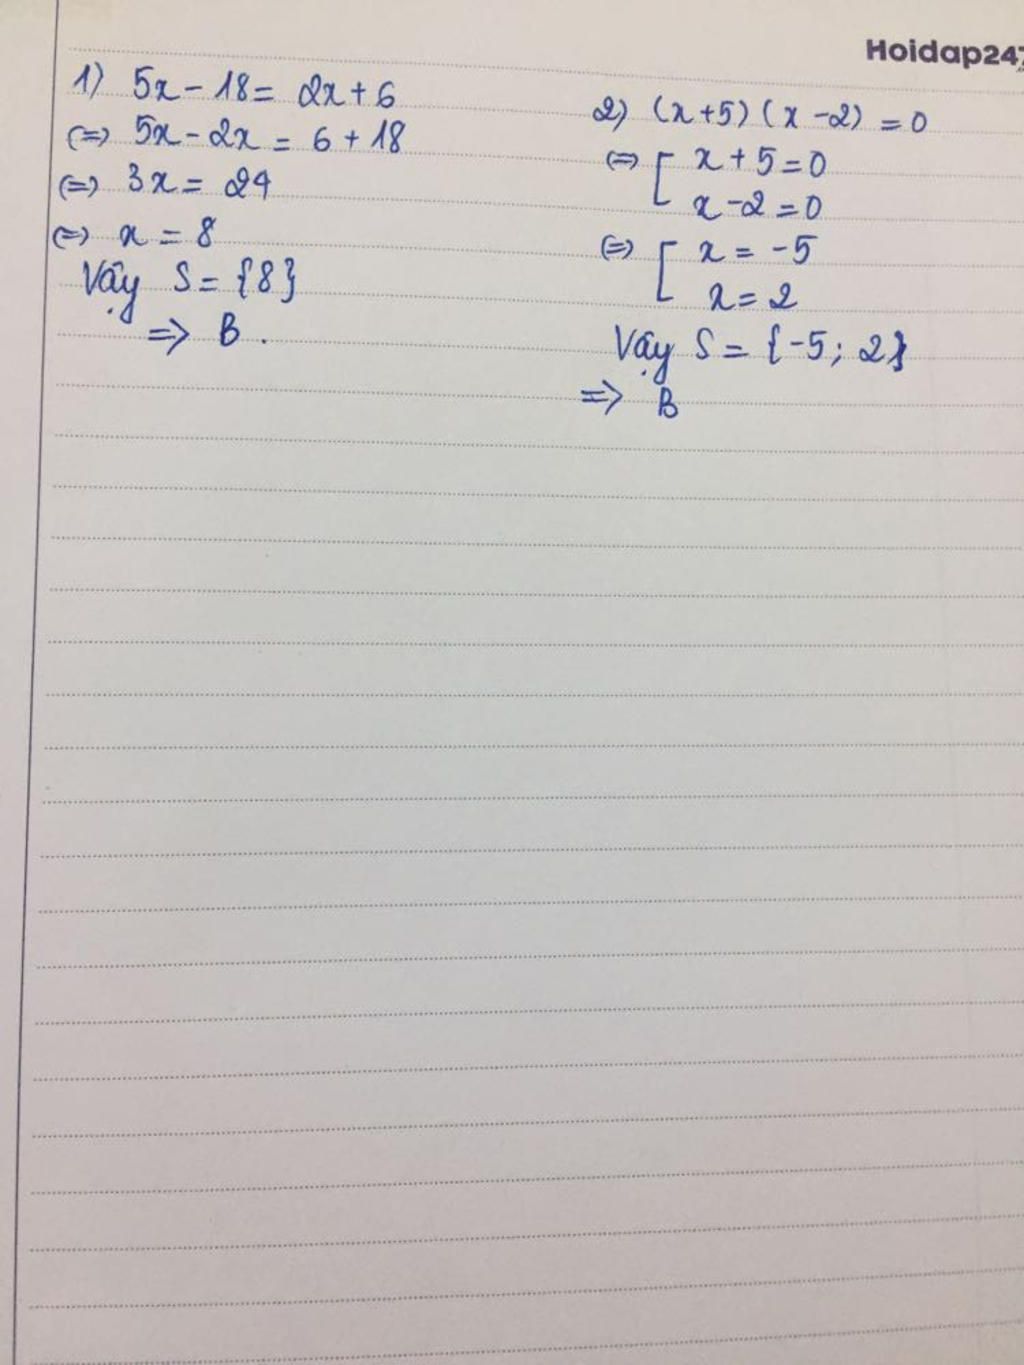 Hoidap247
1) 5x - 18 = 2x + 6
(=) 5x - 2x = 6 + 18
(=) 3x = 24
(=) x = 8
Vậy S = {8}
=> B.
2) (x+5)(x-2) = 0
(=) [ x + 5 = 0
x - 2 = 0
(=) [ x = -5
x = 2
Vậy S = {-5; 2}
=> B